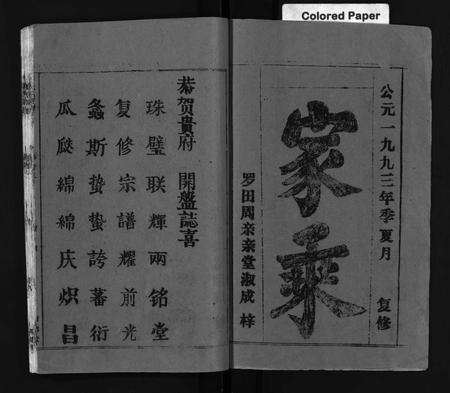 Colored Paper
公元一九九三年季夏月 复修
家乘
罗田周亲亲堂淑成梓
恭贺贵府 開盤誌喜
珠璧联輝兩铭堂
复修宗譜耀前光
螽斯蛰蛰誇蕃衍
瓜瓞綿綿庆炽昌